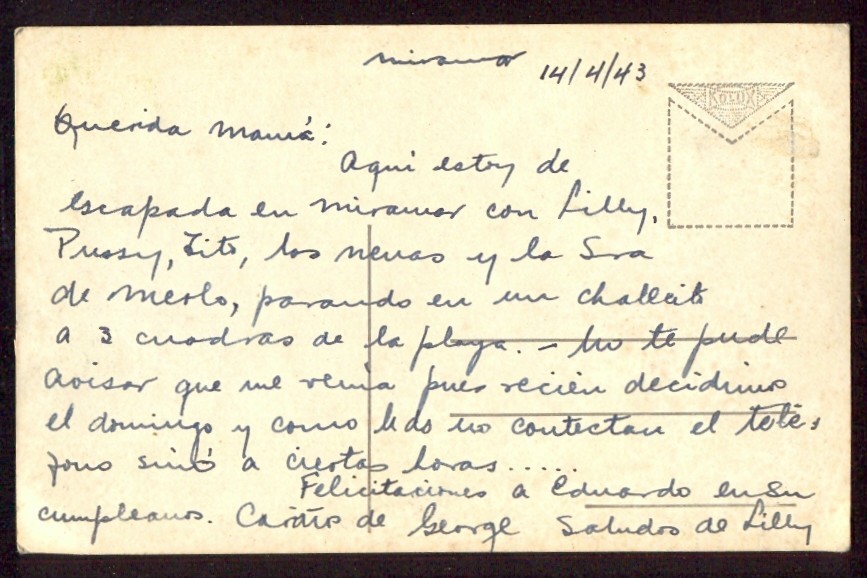 Miramar
14/4/43
ROLUX
Querida Mamá:
Aqui estoy de
escapada en Miramar con Lilly,
Pussy, Tito, las nenas y la Sra
de Merlo, parando en un challecito
a 3 cuadras de la playa. - No te pude
avisar que me venia pues recién decidimos
el domingo y como Uds no contectan el telé-
fono sinó a ciertas horas.....
Felicitaciones a Eduardo en su
cumpleanos. Cariños de George Saludos de Lilly